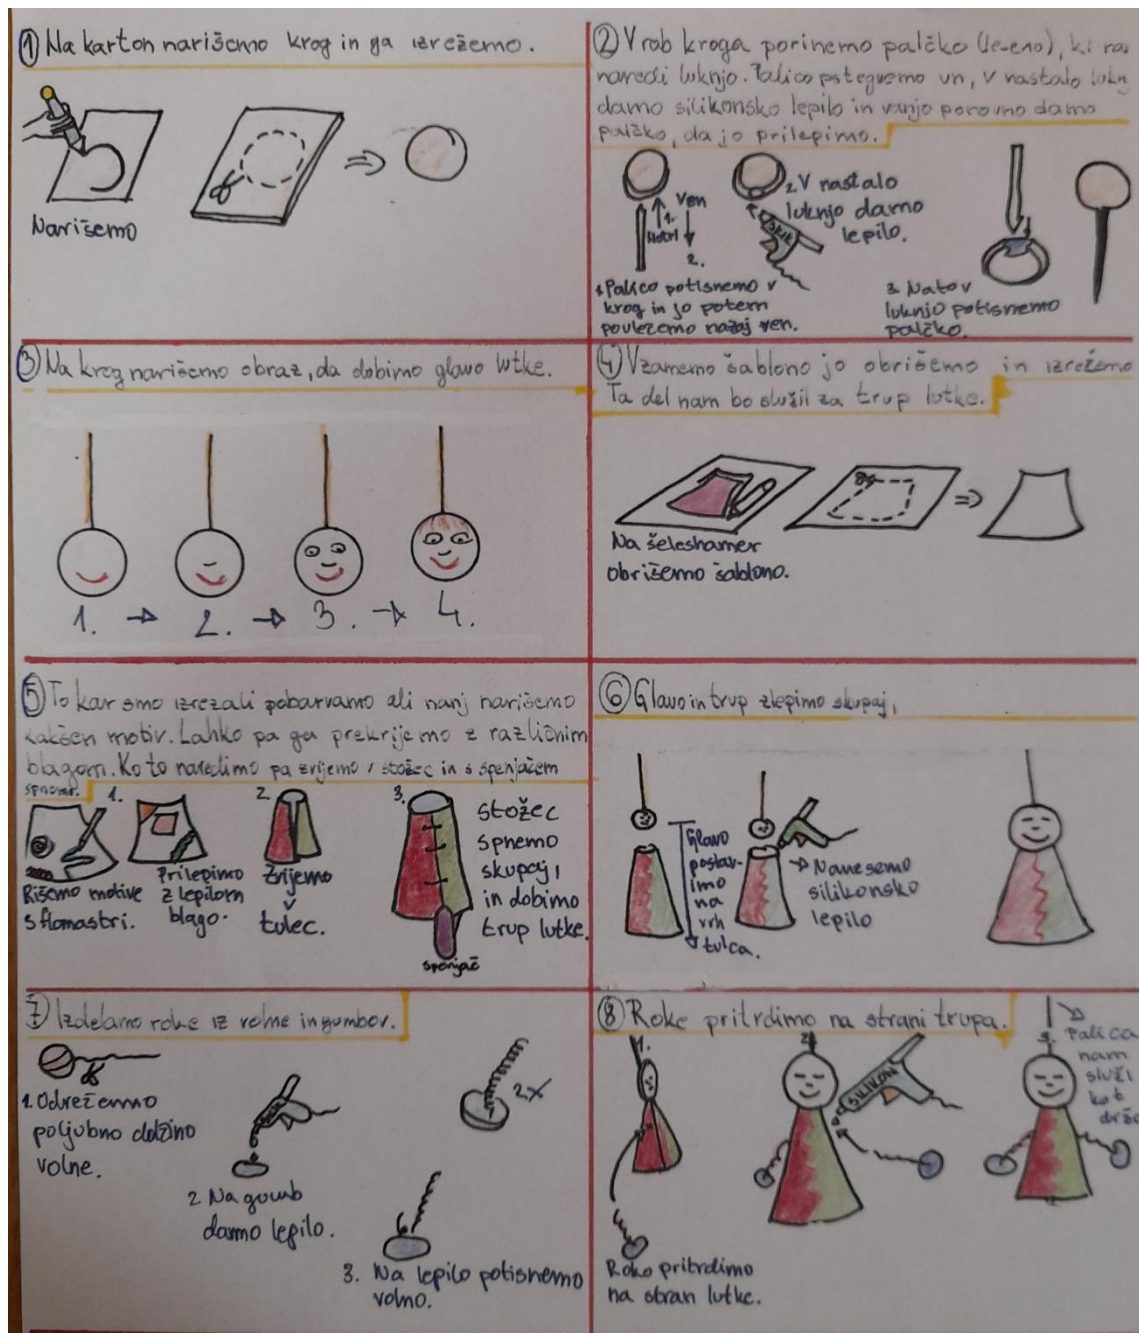 1 Na karton narišemo krog in ga izrežemo.
Narišemo
2 V rob kroga porinemo palčko (leseno), ki
naredi luknjo. Palico potegnemo vn, v nastalo
damo silikonsko lepilo in vanjo ponovno damo
palčko, da jo prilepimo.
Ven
1.
Notri
2.
1. Palico potisnemo v
krog in jo potem
povlečemo nazaj ven.
2. V nastalo
luknjo damo
lepilo.
3. Nato v
luknjo potisnemo
palčko.
3 Na krog narišemo obraz, da dobimo glavo lutke.
1. → 2. → 3. → 4.
4 Vzamemo šablono jo obrišemo in izrežemo
Ta del nam bo služil za trup lutke.
Na šeleshamer
obrišemo šablono.
5 To kar smo izrezali pobarvamo ali nanj narišemo
kakšen motiv. Lahko pa ga prekrijemo z različnim
blagom. Ko to naredimo pa zvijemo v stožec in s spenjačem
spnemo.
Rišemo motive
s flomastri.
1.
Prilepimo
z lepilom
blago.
2.
Zvijemo
v
tulec.
3.
stožec
spnemo
skupaj,
in dobimo
trup lutke.
spenjač
6 Glavo in trup zlepimo skupaj,
Glavo
postav-
imo
na
vrh
tulca.
→ Nanesemo
silikonsko
lepilo
7 Izdelamo roke iz volne in gumbov.
1. Odrežemo
poljubno dolžino
volne.
2. Na gumb
damo lepilo.
2x
3. Na lepilo potisnemo
volno.
8 Roke pritrdimo na strani trupa.
1.
Roko pritrdimo
na stran lutke.
2.
SILIKON
3.
Palica
nam
služi
kot